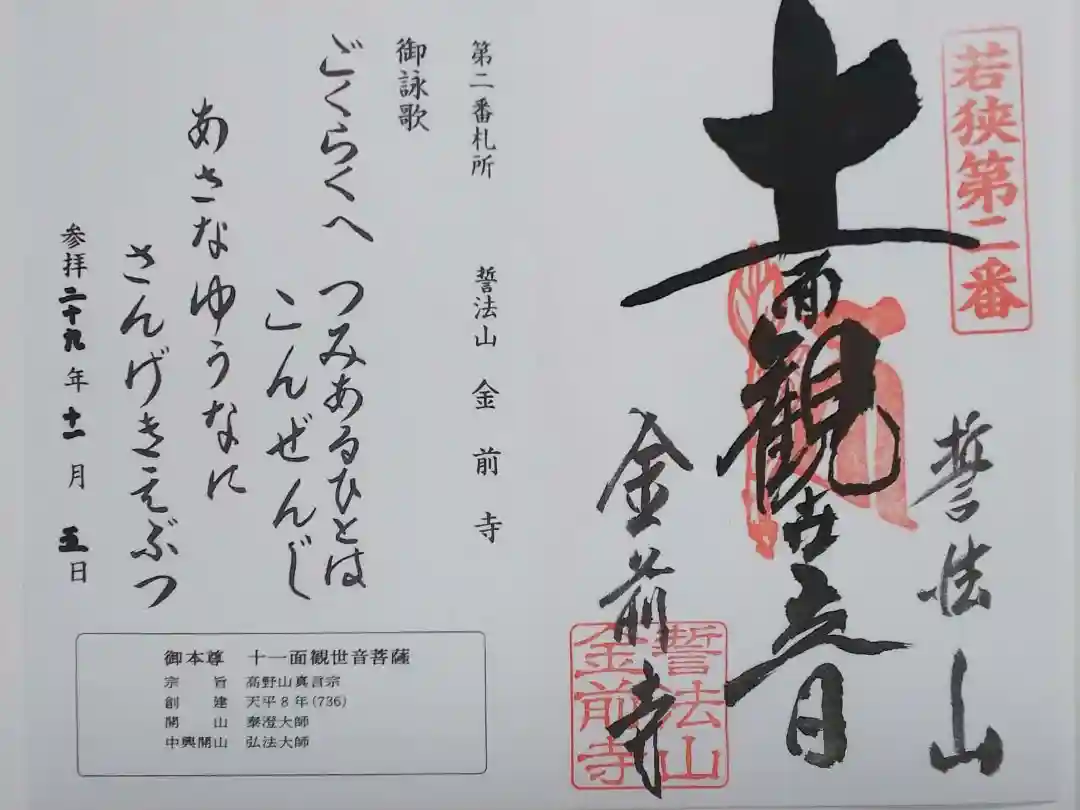 若狭第二番
誓法山
十一面観世音
金前寺
誓法山
金前寺
第二番札所 誓法山 金前寺
御詠歌
ごくらくへ つみあるひとは
こんぜんじ
あさなゆうなに
さんげきえぶつ
参拝二十九年十一月五日
御本尊 十一面観世音菩薩
宗旨 高野山真言宗
創建 天平8年(736)
開山 泰澄大師
中興開山 弘法大師